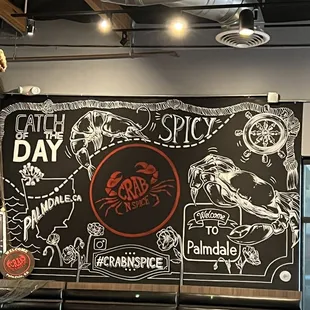 CATCH
OF THE
DAY
SPICY
PALMDALE, CA
CRAB
'N SPICE
Welcome
TO
Palmdale
#CRABNSPICE